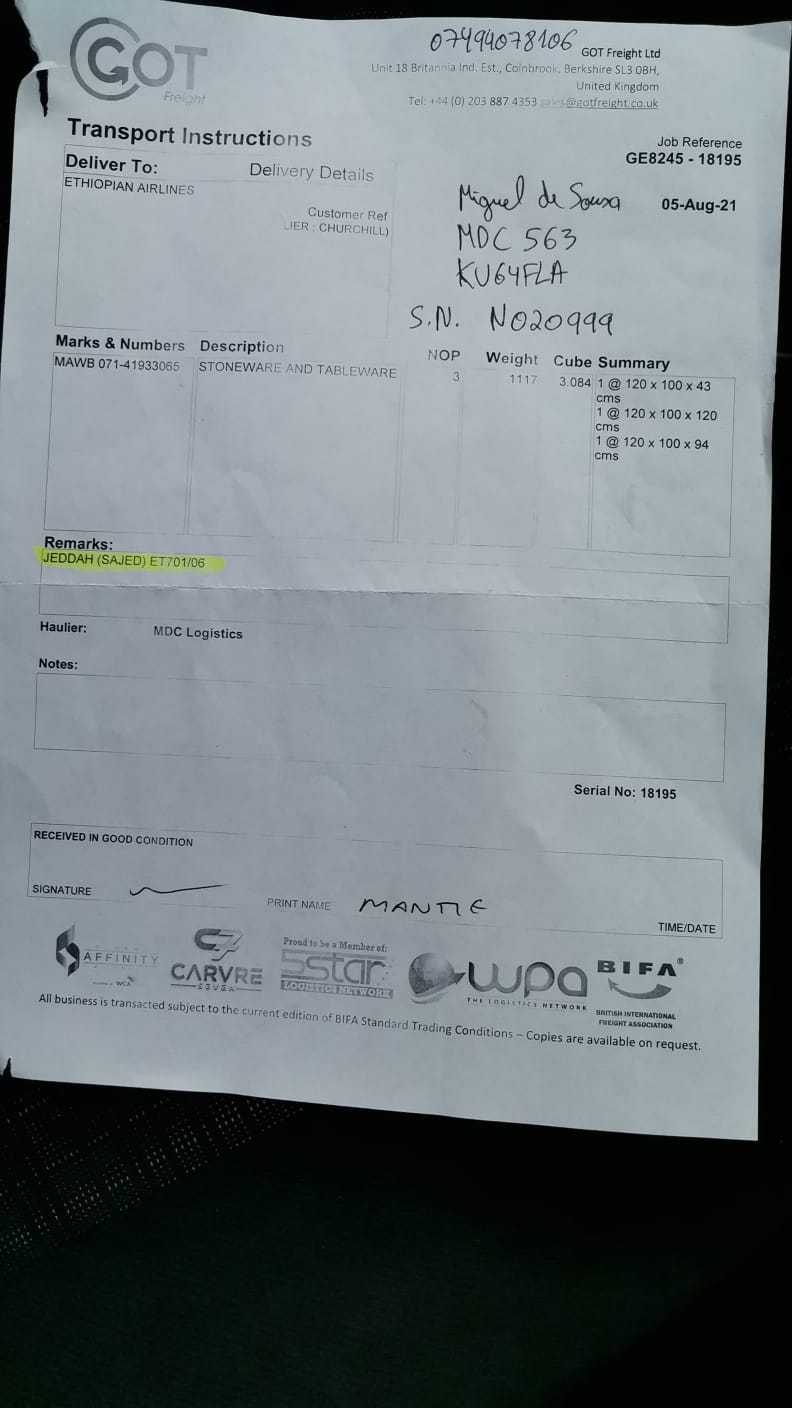 GOT
Freight
07494078106
GOT Freight Ltd
Unit 18 Britannia Ind. Est., Colnbrook, Berkshire SL3 0BH,
United Kingdom
Tel: +44 (0) 203 887 4353 sales@gotfreight.co.uk
Transport Instructions
Job Reference
GE8245 - 18195
Deliver To: Delivery Details
ETHIOPIAN AIRLINES
Customer Ref
LIER : CHURCHILL)
Miguel de Sousa 05-Aug-21
MDC 563
KU64FLA
S.N. N020999
Marks & Numbers Description NOP Weight Cube Summary
MAWB 071-41933065 STONEWARE AND TABLEWARE 3 1117 3.084 1 @ 120 x 100 x 43
cms
1 @ 120 x 100 x 120
cms
1 @ 120 x 100 x 94
cms
Remarks:
JEDDAH (SAJED) ET701/06
Haulier: MDC Logistics
Notes:
Serial No: 18195
RECEIVED IN GOOD CONDITION
SIGNATURE PRINT NAME MANTIE
TIME/DATE
AFFINITY
WCA
CARVRE
SEVEN
Proud to be a Member of:
5star
LOGISTICS NETWORK
wpa
THE LOGISTICS NETWORK
BIFA®
BRITISH INTERNATIONAL
FREIGHT ASSOCIATION
All business is transacted subject to the current edition of BIFA Standard Trading Conditions – Copies are available on request.